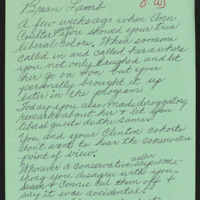 Brian Lamb
A few weeks ago when Ann
Coulter you showed your true
liberal colors. When someone
called in and called her a whore
you not only laughed and let
her go on Hon but you
personally brought it up
later in the program!
Today you also made diroggatory
remarks about her & let your
liberal guests do the same.
You and your Clinton cohorts
don't want to hear the conservative
point of view.
Whenever a conservative caller
disagrees with you
Susan & Connie cut them off &
say it was accidental